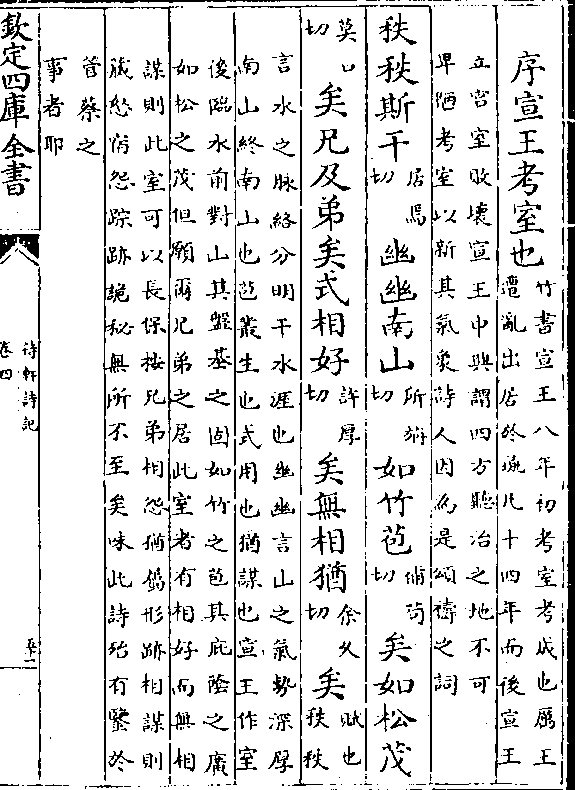 序宣王考室也竹書宣王八年初考室考成也厲王
遭亂出居於彘凡十四年而後宣王
立宫室敗壞宣王中興謂四方聽治之地不可
卑陋考室以新其氣象詩人因爲是頌禱之詞
秩秩斯干居焉切幽幽南山所旃切如竹苞補茍切矣如松茂
莫口切矣兄及弟矣式相好許厚切矣無相猶余久切矣賦也秩秩
言水之脉絡分明干水涯也幽幽言山之氣勢深厚
南山終南山也苞叢生也式用也猶謀也宣王作室
後臨水前對山其盤基之固如竹之苞其庇䕃之廣
如松之茂但願爾兄弟之居此室者有相好而無相
謀則此室可以長保按兄弟相怨猶僞形跡相謀則
藏怒宿怨踪跡詭秘無所不至矣味此詩殆有鑒於
管蔡之
事者耶
欽定四庫全書
待軒詩記
卷四